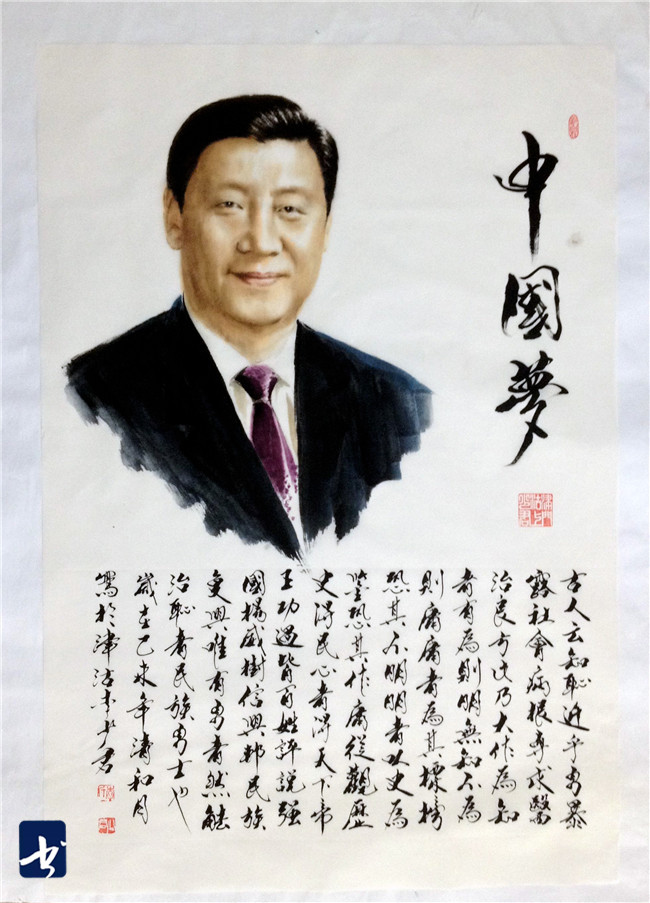 中國夢
古人云知恥近乎勇暴
露社會病根專求醫
治良方乃大作為知
者有為則明無知不為
則庸庸者為其標榜
恐其不明明者以史為
鑒恐其作庸從觀歷
史得民心者得天下帝
王功過皆百姓評說强
國揚威樹信興邦民族
复興唯有勇者然能
治恥者民族勇士也
歲在乙未年清和月
寫於津沽
书